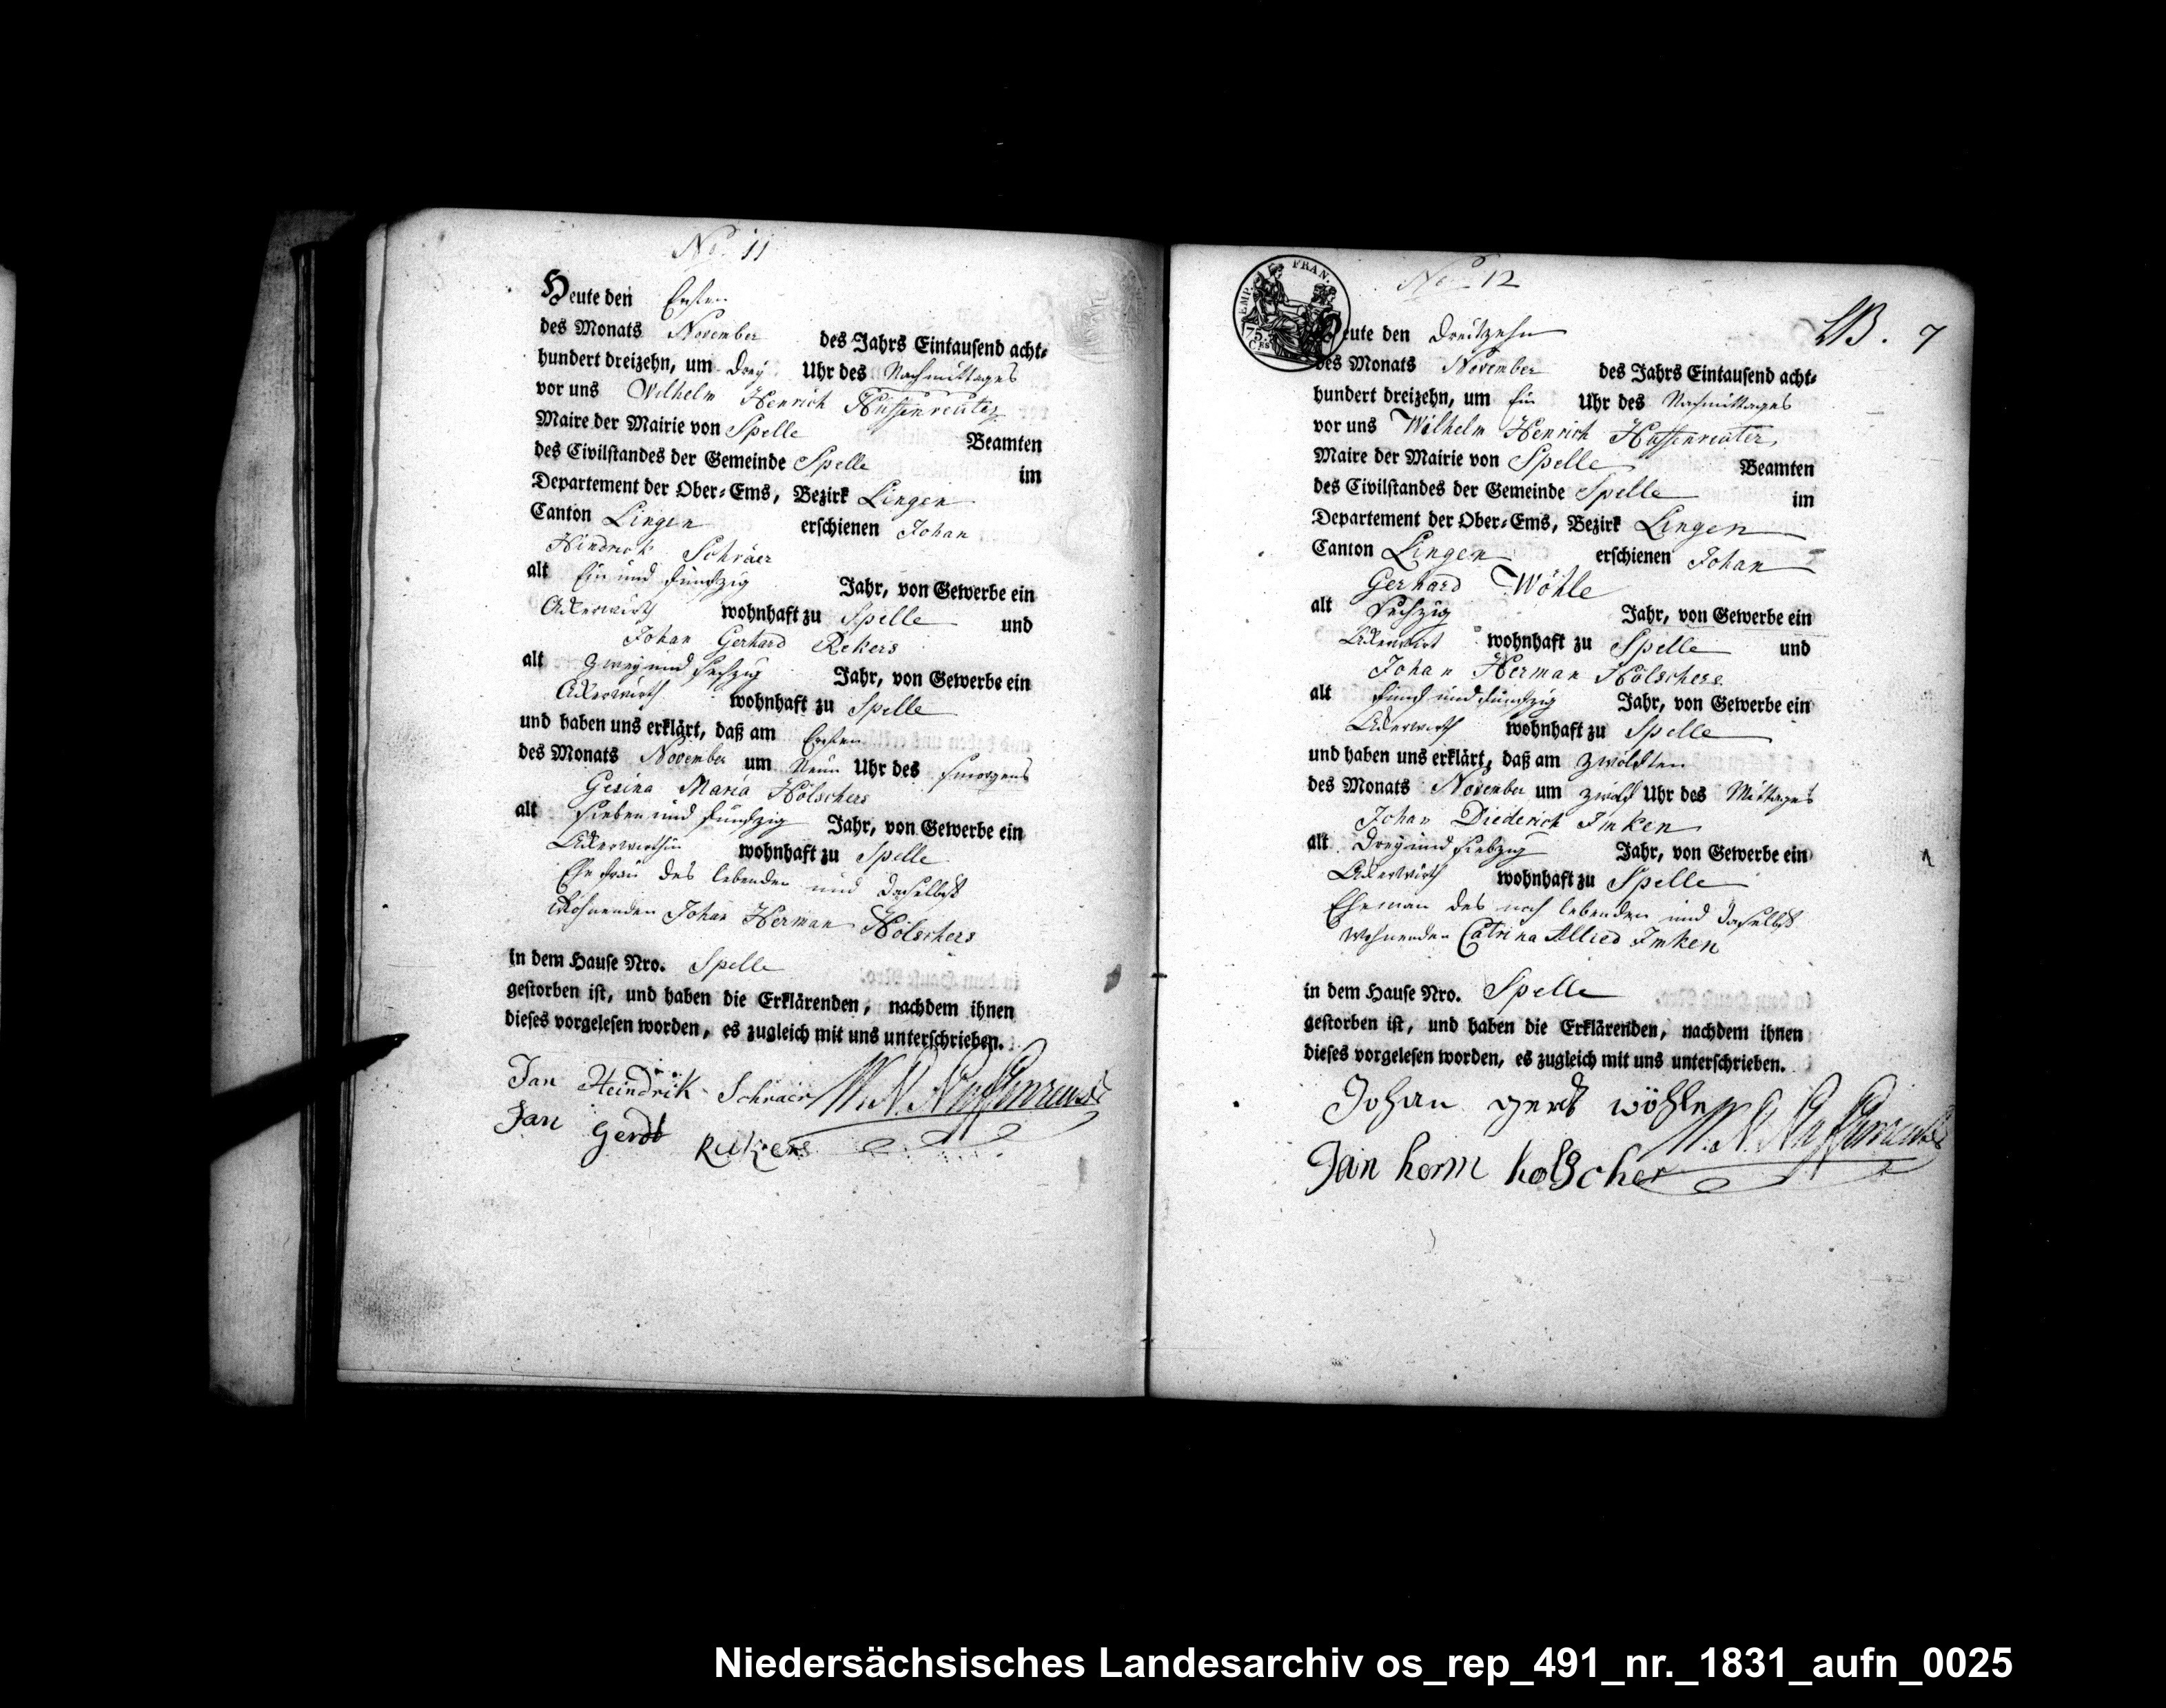 No. 11
Heute den Ersten
des Monats November des Jahrs Eintausend acht-
hundert dreizehn, um Drey Uhr des Nachmittages
vor uns Wilhelm Henrich Hüffenreuter
Maire der Mairie von Spelle Beamten
des Civilstandes der Gemeinde Spelle im
Departement der Ober-Ems, Bezirk Lingen
Canton Lingen erschienen Johan
Hindrick Schräer
alt Ein und funfzig Jahr, von Gewerbe ein
Ackerwirth wohnhaft zu Spelle und
Johan Gerhard Rekers
alt Zwey und sechzig Jahr, von Gewerbe ein
Ackerwirth wohnhaft zu Spelle
und haben uns erklärt, daß am Ersten
des Monats November um Neun Uhr des smorgens
Gesina Maria Hölschers
alt sieben und funfzig Jahr, von Gewerbe ein
Ackerwirthin wohnhaft zu Spelle
Ehe frau des lebenden und daselbst
Wohnenden Johan Herman Hölschers
in dem Hause Nro. Spelle
gestorben ist, und haben die Erklärenden, nachdem ihnen
dieses vorgelesen worden, es zugleich mit uns unterschrieben.
Jan Heindrik Schräer W. H. Hüffenreuter
Jan Gerdt Rekers
EMP. FRAN.
75. CES
No. 12
7
Heute den Dreitzehn
des Monats November des Jahrs Eintausend acht-
hundert dreizehn, um Ein Uhr des Nachmittages
vor uns Wilhelm Henrich Hüffenreuter
Maire der Mairie von Spelle Beamten
des Civilstandes der Gemeinde Spelle im
Departement der Ober-Ems, Bezirk Lingen
Canton Lingen erschienen Johan
Gerhard Wöhle
alt Sechzig Jahr, von Gewerbe ein
Ackerwirt wohnhaft zu Spelle und
Johan Herman Hölschers
alt funf und funfzig Jahr, von Gewerbe ein
Ackerwirth wohnhaft zu Spelle
und haben uns erklärt, daß am zwölften
des Monats November um zwölf Uhr des Mittages
Johan Diederich Imken
alt Drey und siebzig Jahr, von Gewerbe ein
Ackerwirth wohnhaft zu Spelle
Eheman des noch lebenden und daselbst
Wohnenden Catrina Allied Imken
in dem Hause Nro. Spelle
gestorben ist, und haben die Erklärenden, nachdem ihnen
dieses vorgelesen worden, es zugleich mit uns unterschrieben.
Johan gerd wöhle W. H. Hüffenreuter
Jan herm holscher
Niedersächsisches Landesarchiv os_rep_491_nr._1831_aufn_0025